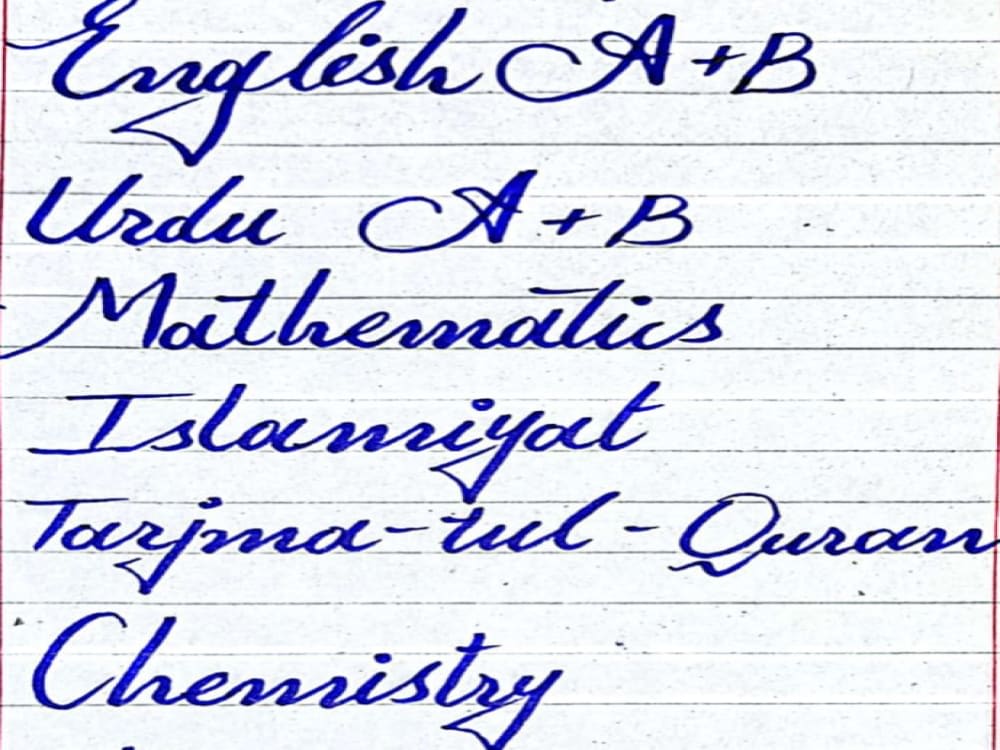 English A+B
Urdu A+B
Mathematics
Islamiyat
Tarjma-tul-Quran
Chemistry